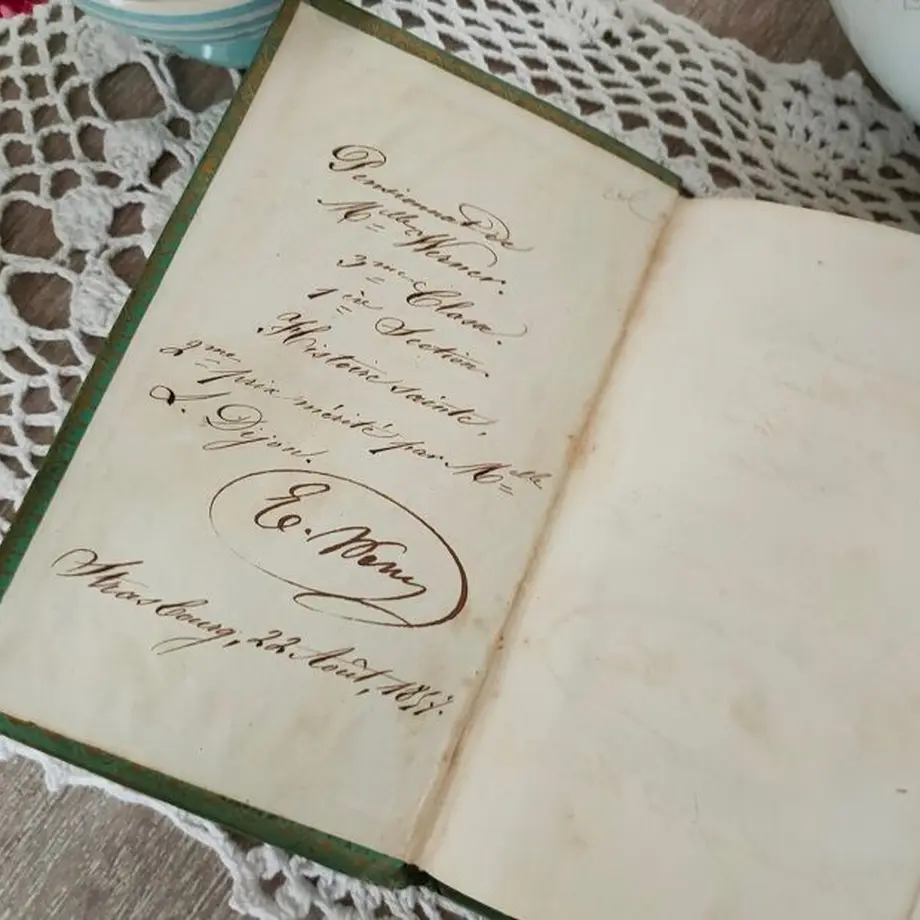 Pensionnat de
Mlle Werner.
3me Classe.
1ère Section.
Histoire sainte,
2me prix mérité par Mlle
L. Dijon.
E. Werner
Strasbourg, 22 Août, 1857.